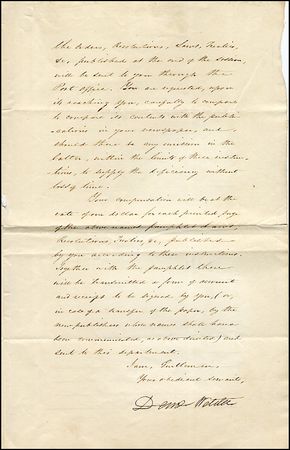 the Orders, Resolutions, Laws, Treaties,
&c, published at the end of the session,
will be sent to you through the
Post office. You are requested, upon
its reaching you, carefully to compare
to compare its contents with the publi-
cations in your newspaper, and
should there be any omission in the
latter, within the limits of these instruc-
tions, to supply the deficiency without
loss of time.
Your compensation will be at the
rate of one dollar for each printed page
of the above named pamphlet Laws,
Resolutions, Treaties &c, published
by you according to these instructions.
Together with the pamphlet there
will be transmitted a form of account
and receipt to be signed by you, (or,
in case of a transfer of the paper, by the
new publishers whose names shall have
been communicated, as above directed) and
sent to this department.
I am, Gentlemen,
Your obedient servant,
Danl Webster